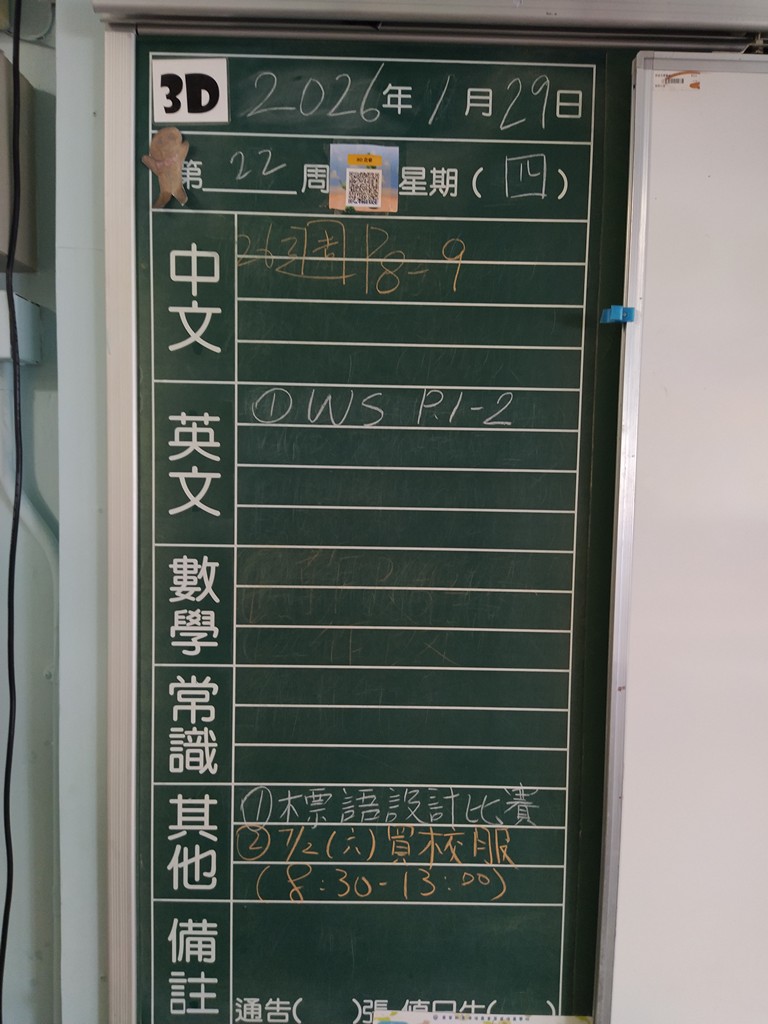 3D 2026年1月29日
第22周 星期(四)
中文
P8-9
英文
①WS P.1-2
數學
常識
其他
①標語設計比賽
②7/2(六)買校服
(8:30-13:00)
備註
通告( )張